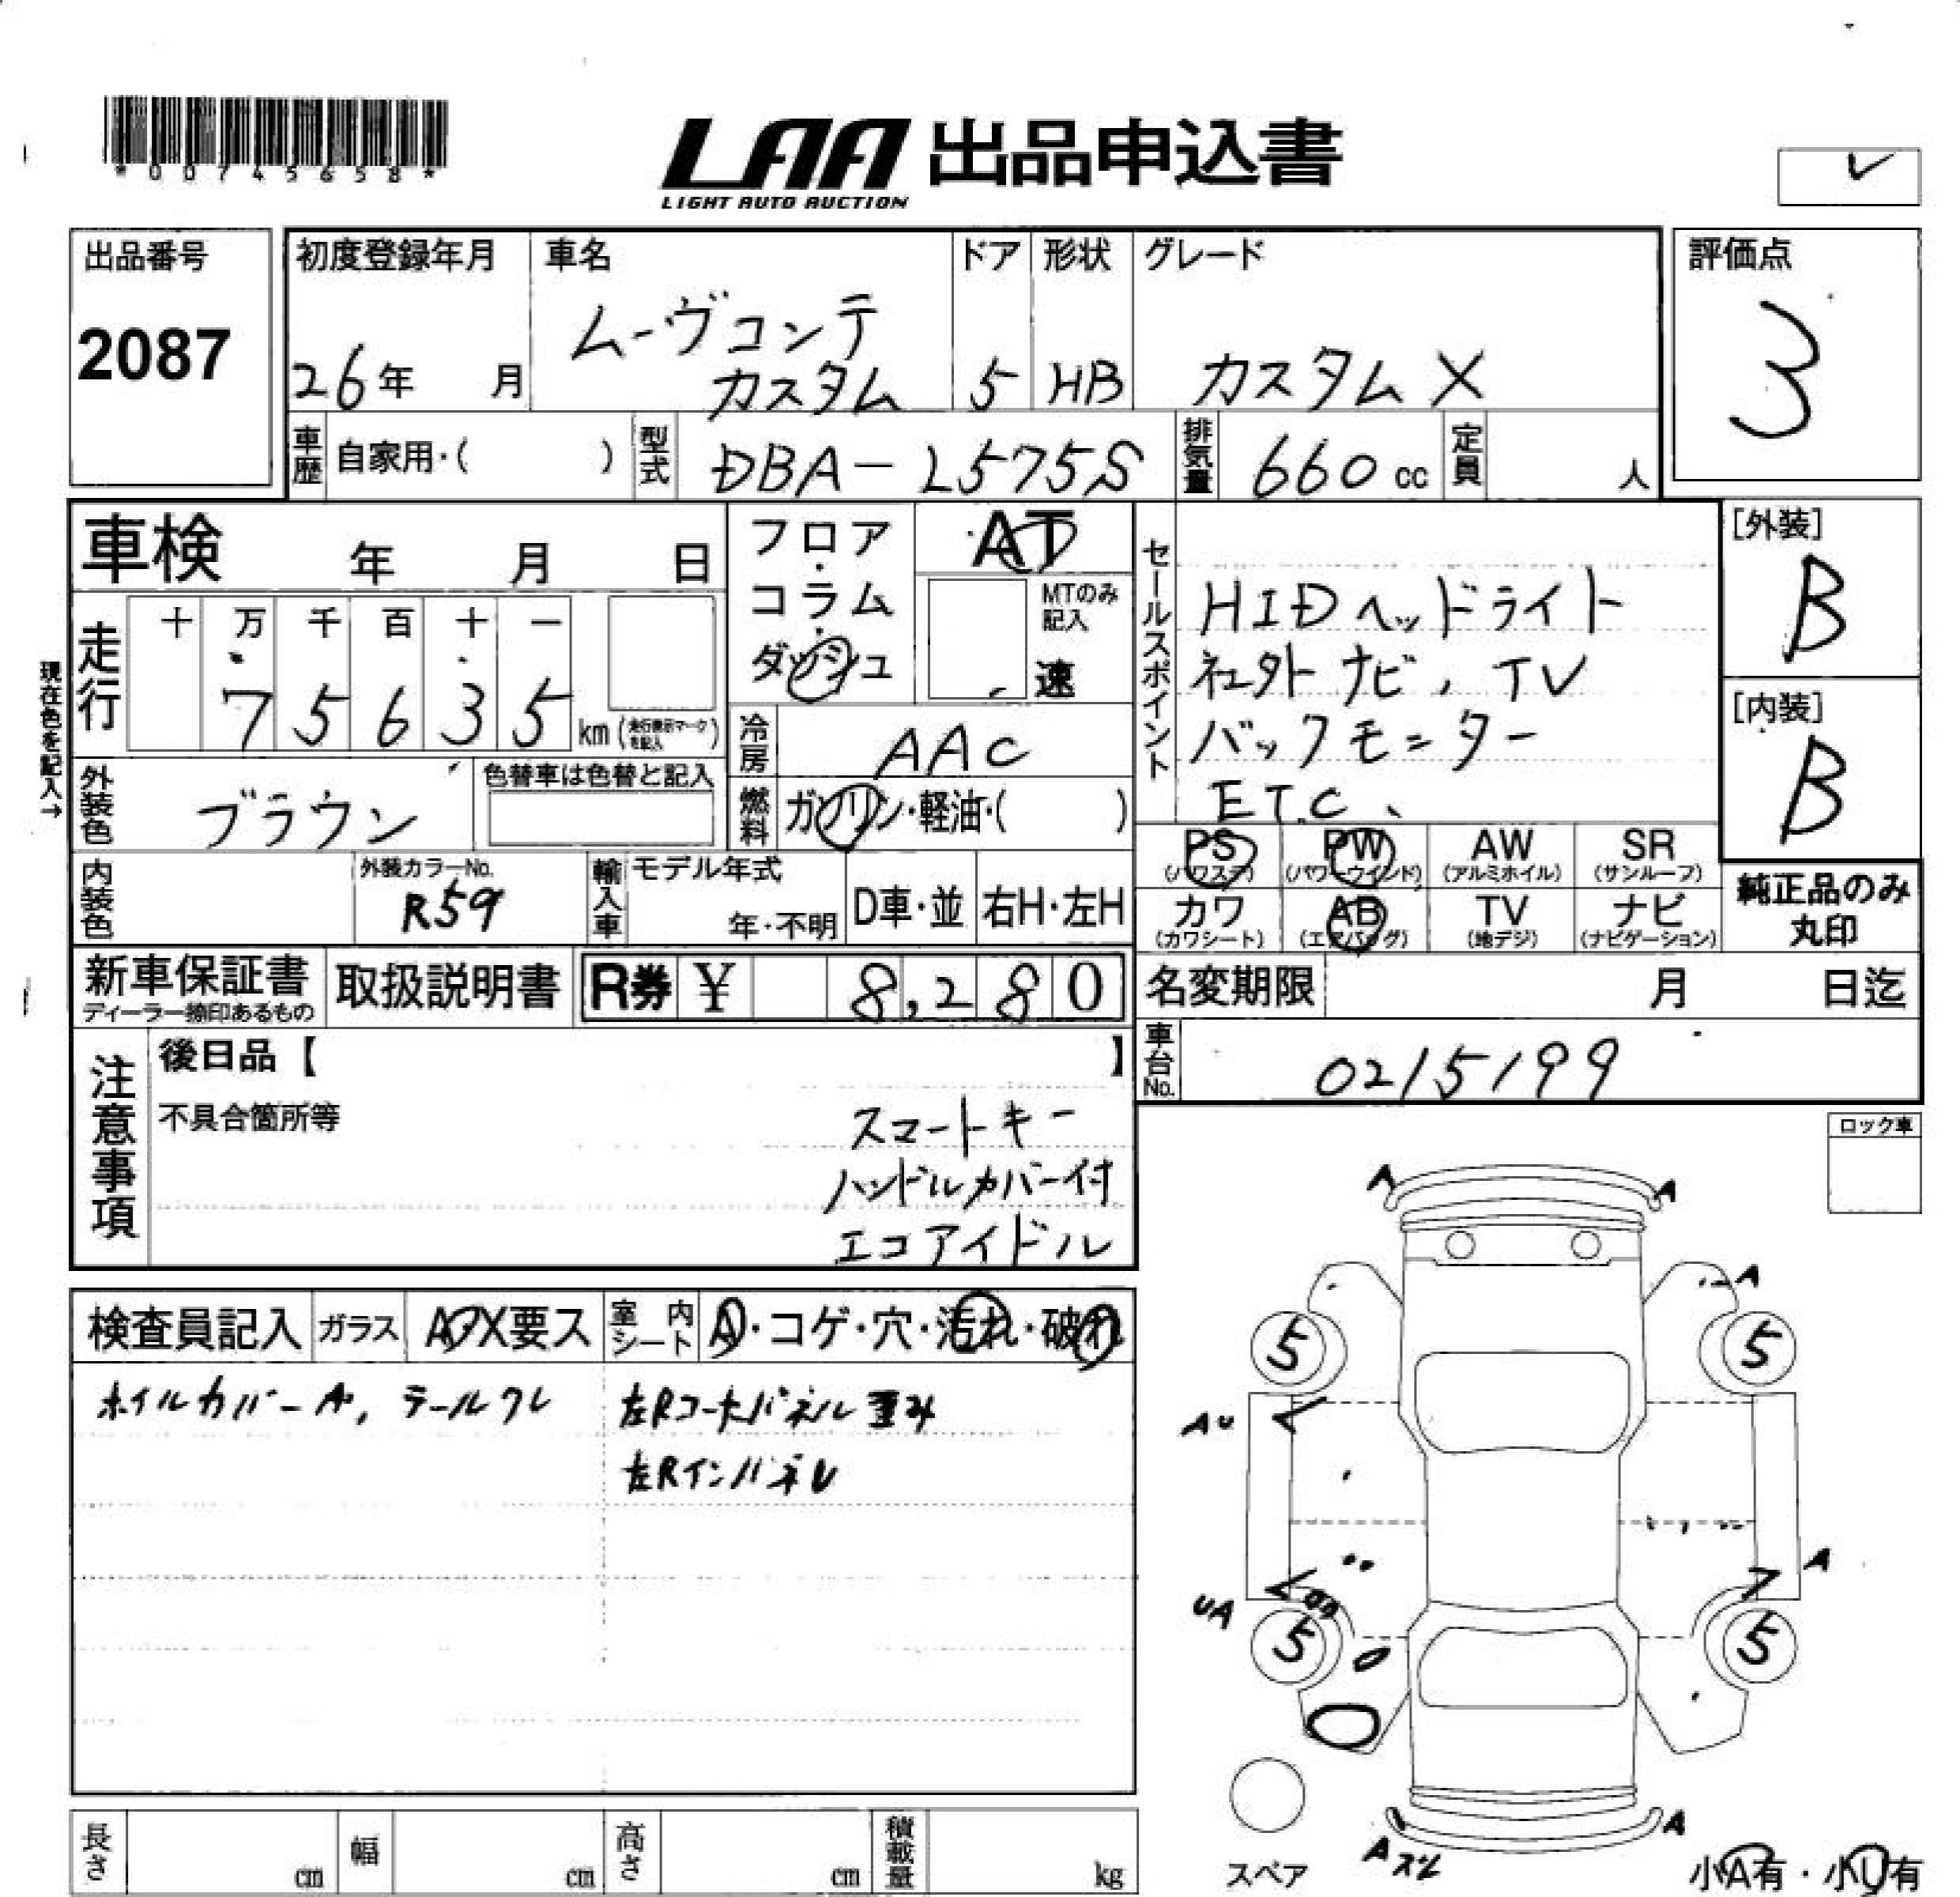 *00745658*
LAA 出品申込書
LIGHT AUTO AUCTION
出品番号
2087
初度登録年月
26年 月
車名
ムーヴコンテ
カスタム
ドア
5
形状
HB
グレード
カスタムX
評価点
3
車歴 自家用・( )
型式 DBA-L575S
排気量 660 cc
定員 人
車検 年 月 日
走行
十 万 千 百 十 一
7 5 6 3 5 km (走行表示マークを記入)
現在色を記入→
外装色 ブラウン
色替車は色替と記入
内装色
外装カラーNo.
R59
フロア・
コラム・
ダッシュ
AT
MTのみ
記入
速
冷房 AAC
燃料 ガソリン・軽油・( )
輸入車
モデル年式
年・不明
D車・並
右H・左H
セールスポイント
HIDヘッドライト
社外ナビ、TV
バックモニター
ETC、
[外装]
B
[内装]
B
PS
(パワステ)
PW
(パワーウインド)
AW
(アルミホイル)
SR
(サンルーフ)
カワ
(カワシート)
AB
(エアバッグ)
TV
(地デジ)
ナビ
(ナビゲーション)
純正品のみ
丸印
新車保証書
ディーラー捺印あるもの
取扱説明書
R券 ¥ 8,280
名変期限 月 日迄
車台No. 0215199
注意事項
後日品【 】
不具合箇所等
スマートキー
ハンドルカバー付
エコアイドル
ロック車
検査員記入
ガラス
A・X要ス
室内
シート
A・コゲ・穴・汚れ・破れ
ホイルカバーA, テールワレ
左Rコーナーパネル歪み
左RインパネU
A
A
A
5
5
AU
A
UA
5
5
A
Aズレ
スペア
小A有・小U有
長さ cm
幅 cm
高さ cm
積載量 kg